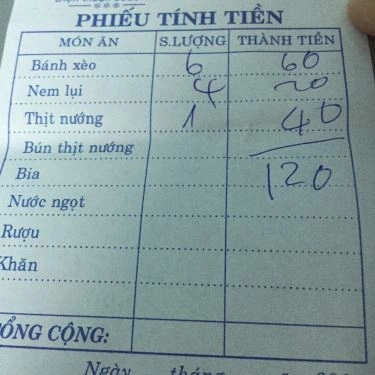 ***
PHIẾU TÍNH TIỀN
MÓN ĂN S.LƯỢNG THÀNH TIỀN
Bánh xèo 6 60
Nem lụi 4 20
Thịt nướng 1 40
Bún thịt nướng
Bia 120
Nước ngọt
Rượu
Khăn
TỔNG CỘNG:
Ngày tháng